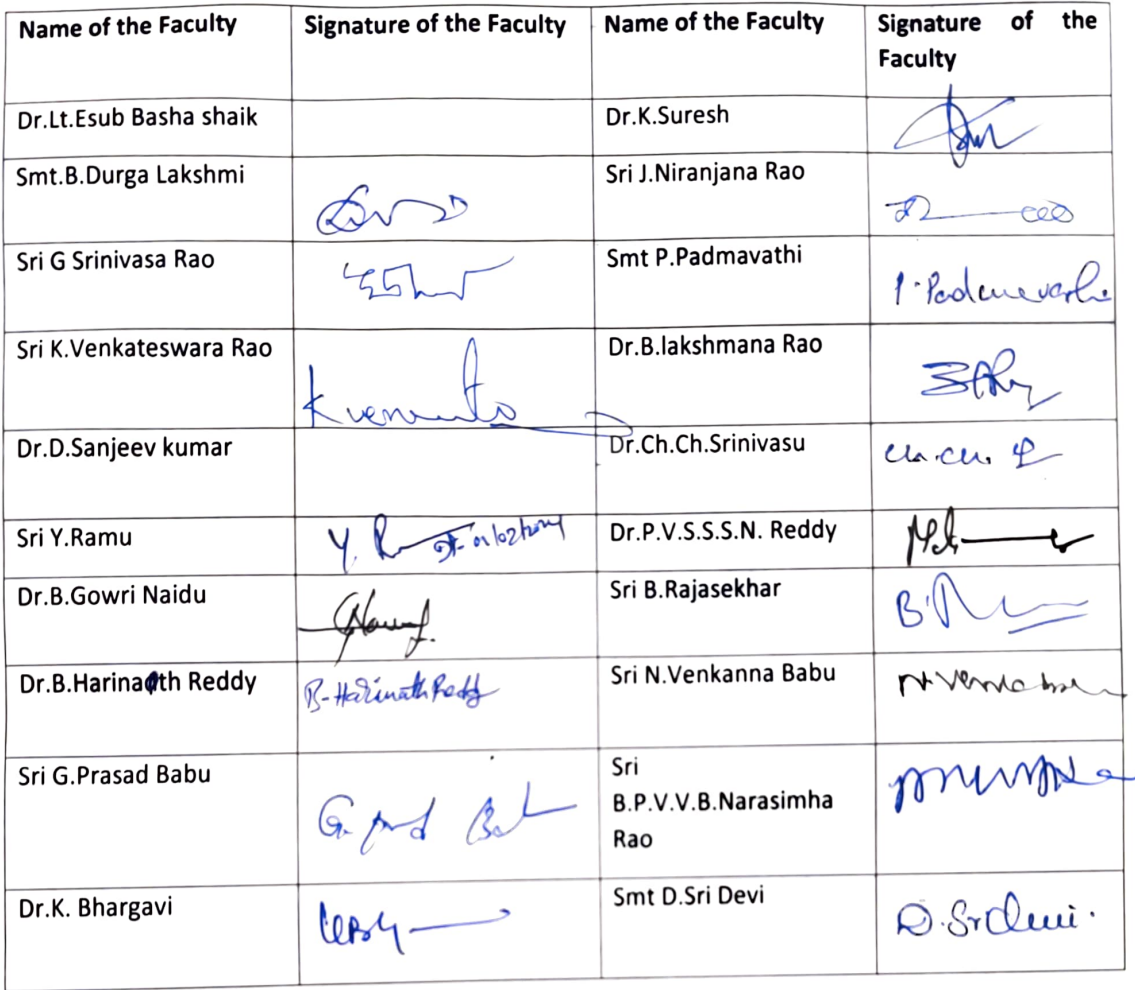 Name of the Faculty Signature of the Faculty Name of the Faculty Signature of the
Faculty
Dr.Lt.Esub Basha shaik Dr.K.Suresh
Smt.B.Durga Lakshmi Sri J.Niranjana Rao
Sri G Srinivasa Rao Smt P.Padmavathi
P.Padmavathi
Sri K.Venkateswara Rao Dr.B.lakshmana Rao
Dr.D.Sanjeev kumar Dr.Ch.Ch.Srinivasu
Ch.Ch.
Sri Y.Ramu Dr.P.V.S.S.S.N. Reddy
Dr.B.Gowri Naidu Sri B.Rajasekhar
Dr.B.Harinath Reddy B-Harinath Reddy Sri N.Venkanna Babu
Sri G.Prasad Babu Sri
B.P.V.V.B.Narasimha
Rao
Dr.K. Bhargavi Smt D.Sri Devi
D.Sri Devi.